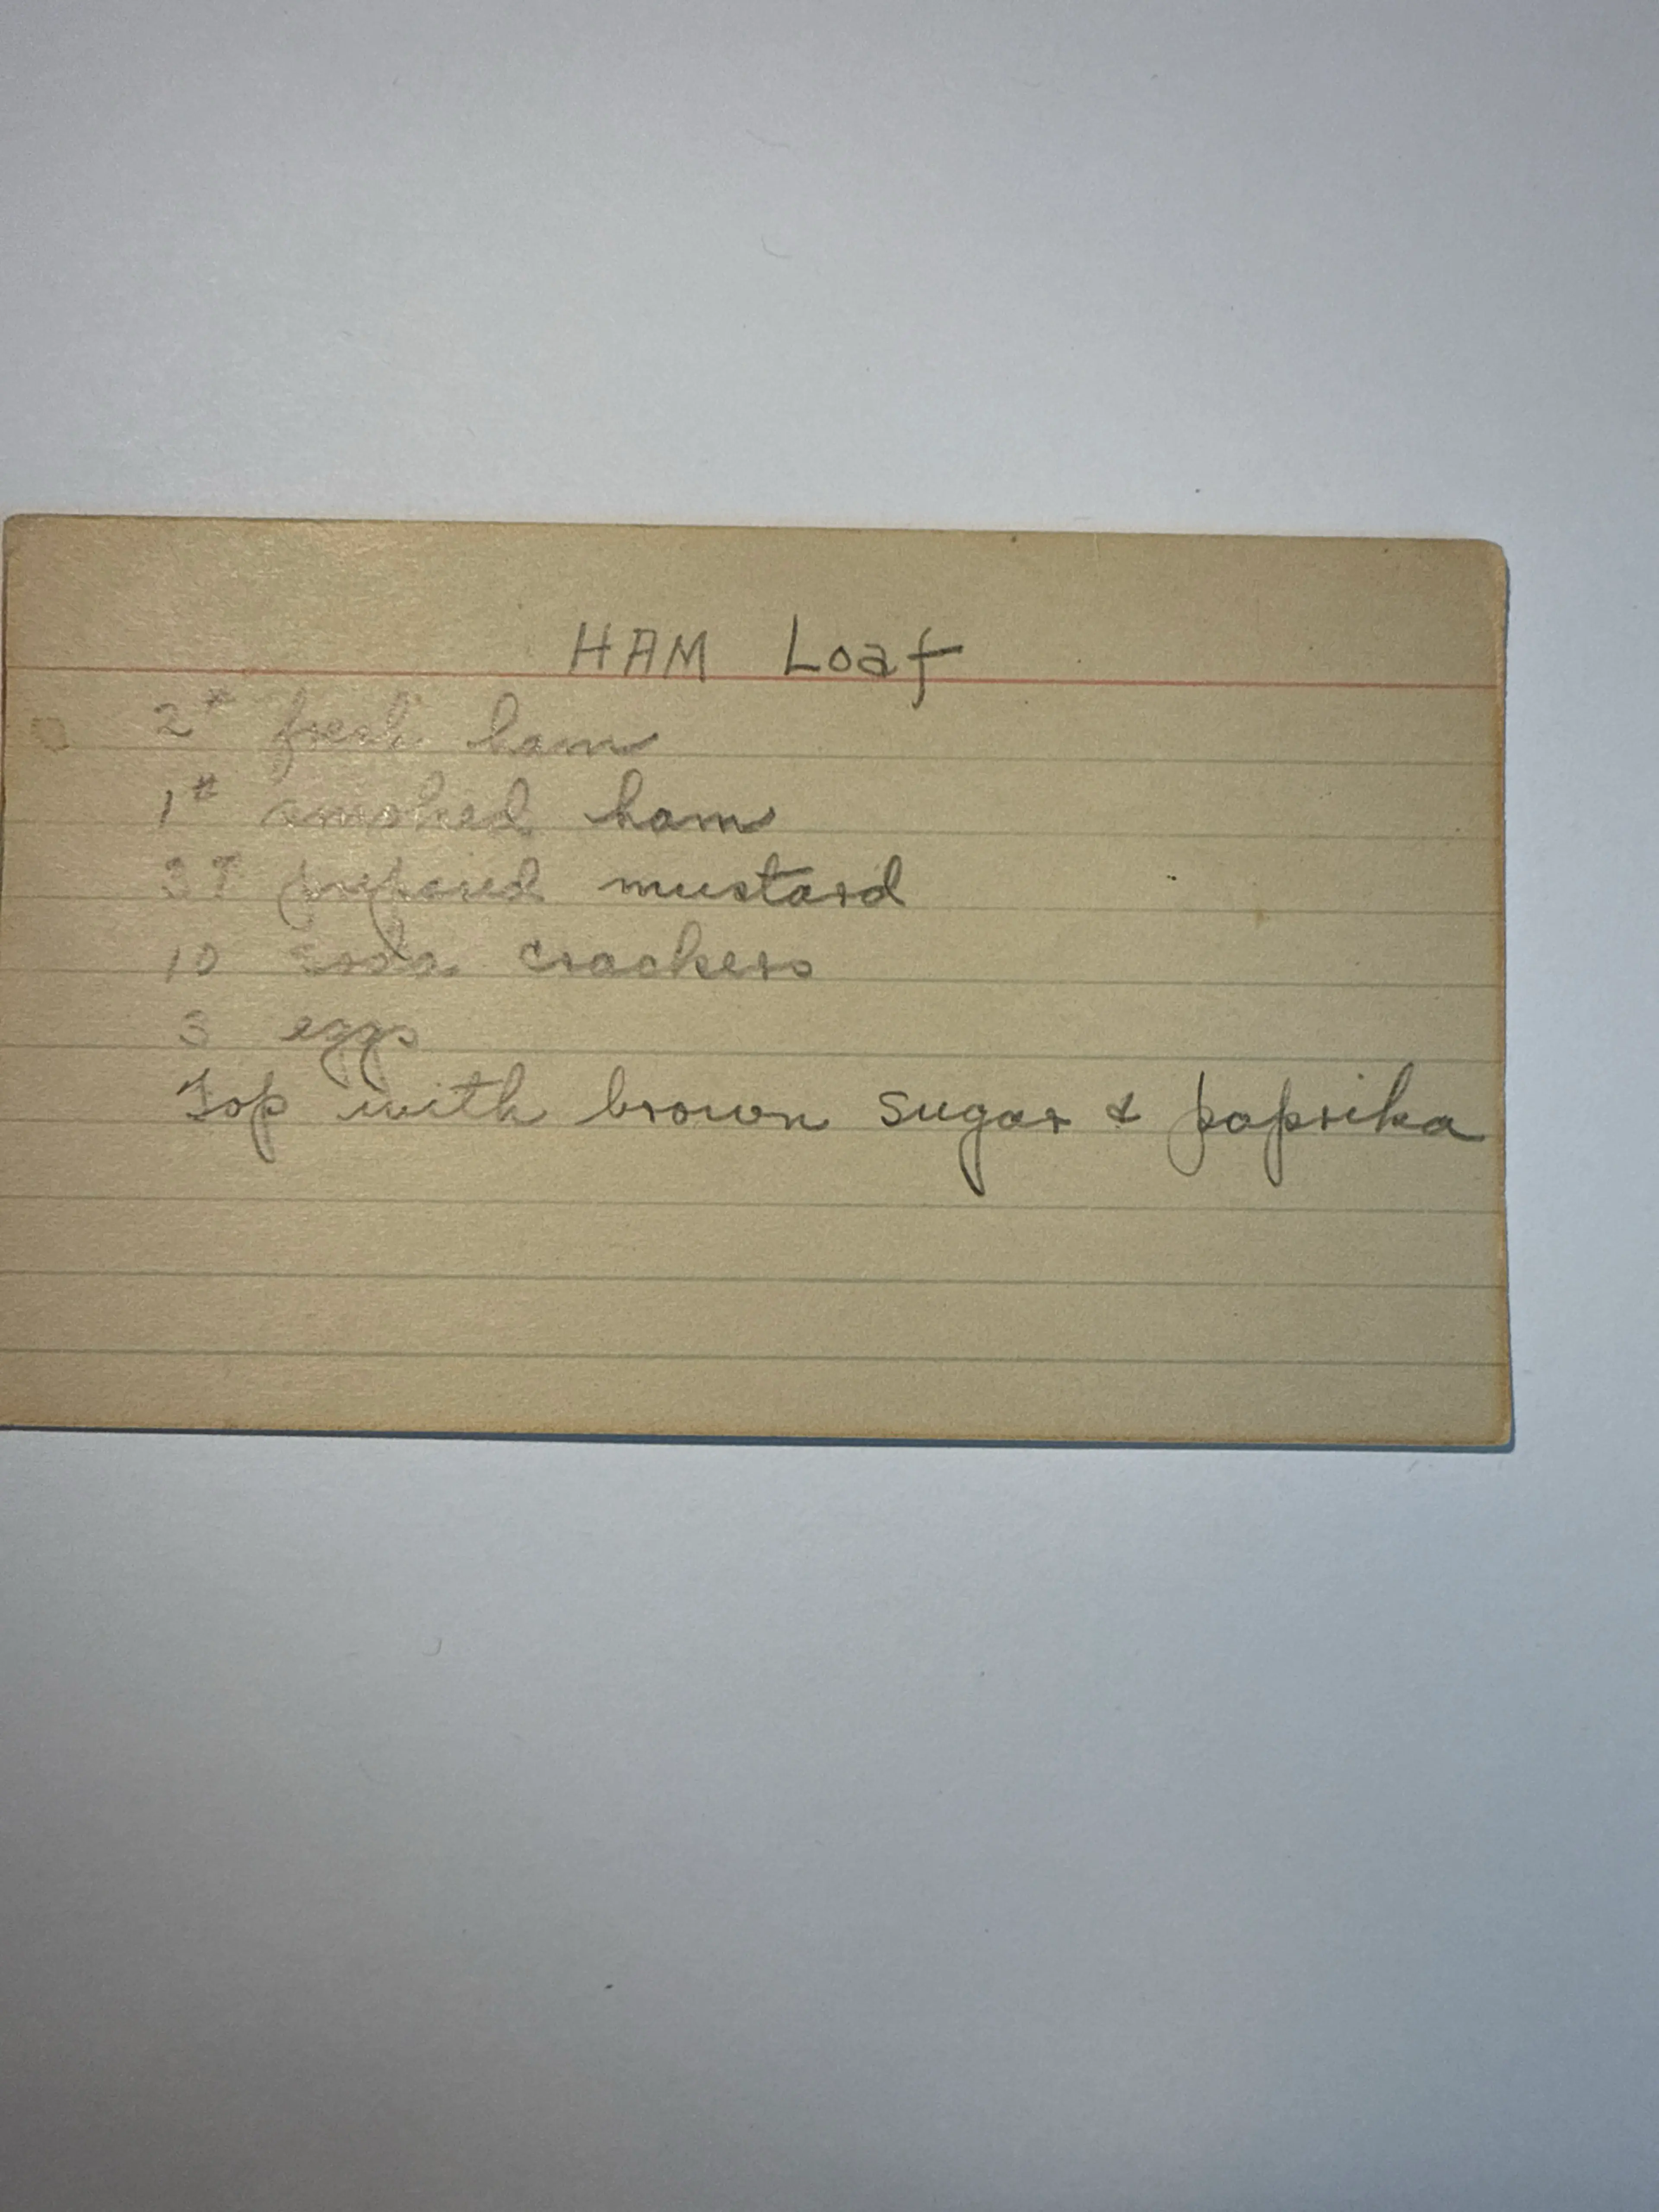 HAM Loaf
2# fresh ham
1# smoked ham
3T prepared mustard
10 soda crackers
3 eggs
Top with brown sugar & paprika